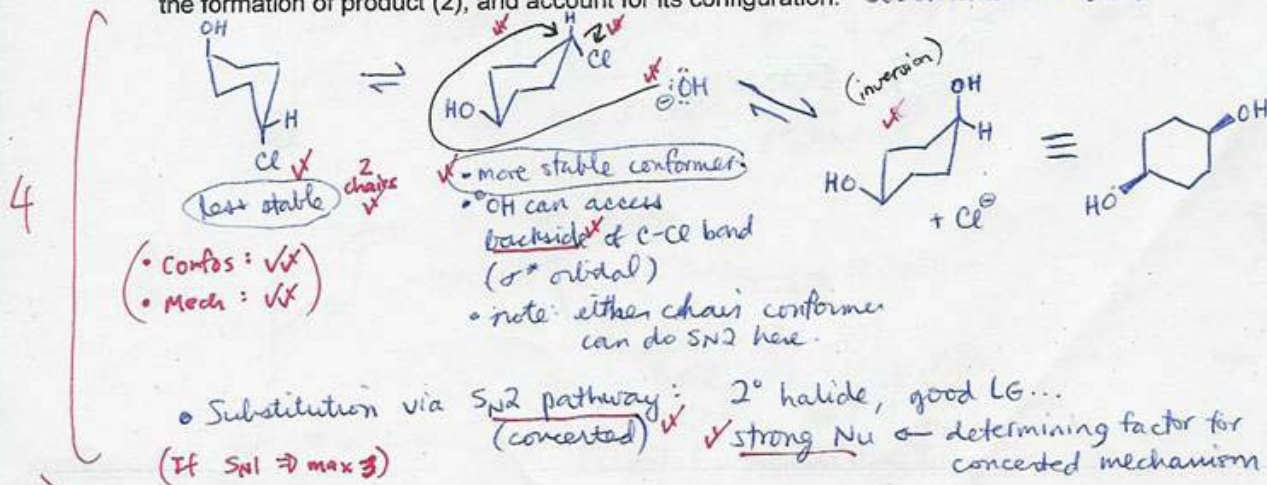 the formation of product (2), and account for its configuration.
OH
H
Cl
less stable
2 chairs
( • confos : ✓✓
• Mech : ✓✓ )
4
H
Cl
HO
⊖ :ÖH
• more stable conformer
• ⊖OH can access
backside of C-Cl bond
(σ* orbital)
• note: either chair conformer
can do SN2 here.
(inversion)
OH
H
HO
+ Cl⊖
≡
OH
HO
• Substitution via SN2 pathway: 2° halide, good LG...
(concerted) ✓ strong Nu ← determining factor for
concerted mechanism
(If SN1 ⇒ max 3)